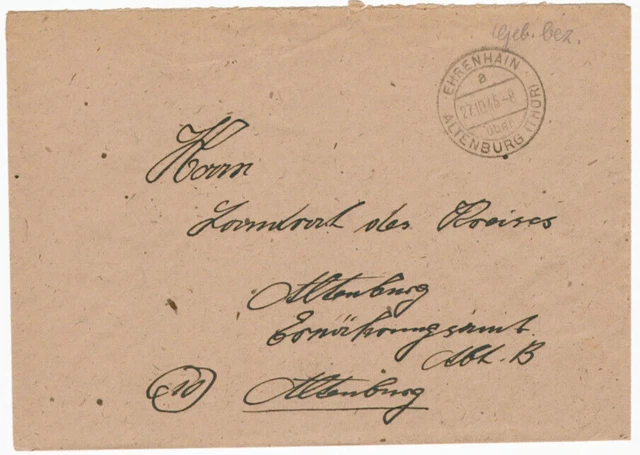 Geb. bez.
EHRENHAIN
a
27.10.45-8
über
ALTENBURG (THÜR)
Herrn
Landrat des Kreises
Altenburg
Ernährungsamt
Abt. B
(10)
Altenburg